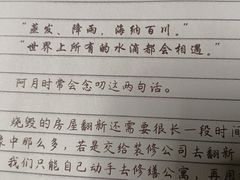 “蒸发、降雨，海纳百川。”
“世界上所有的水滴都会相遇。”
阿月时常会念叨这两句话。
烧毁的房屋翻新还需要很长一段时间
那么多，若是交给装修公司去翻新
我们只能自己动手去修缮公寓，再用